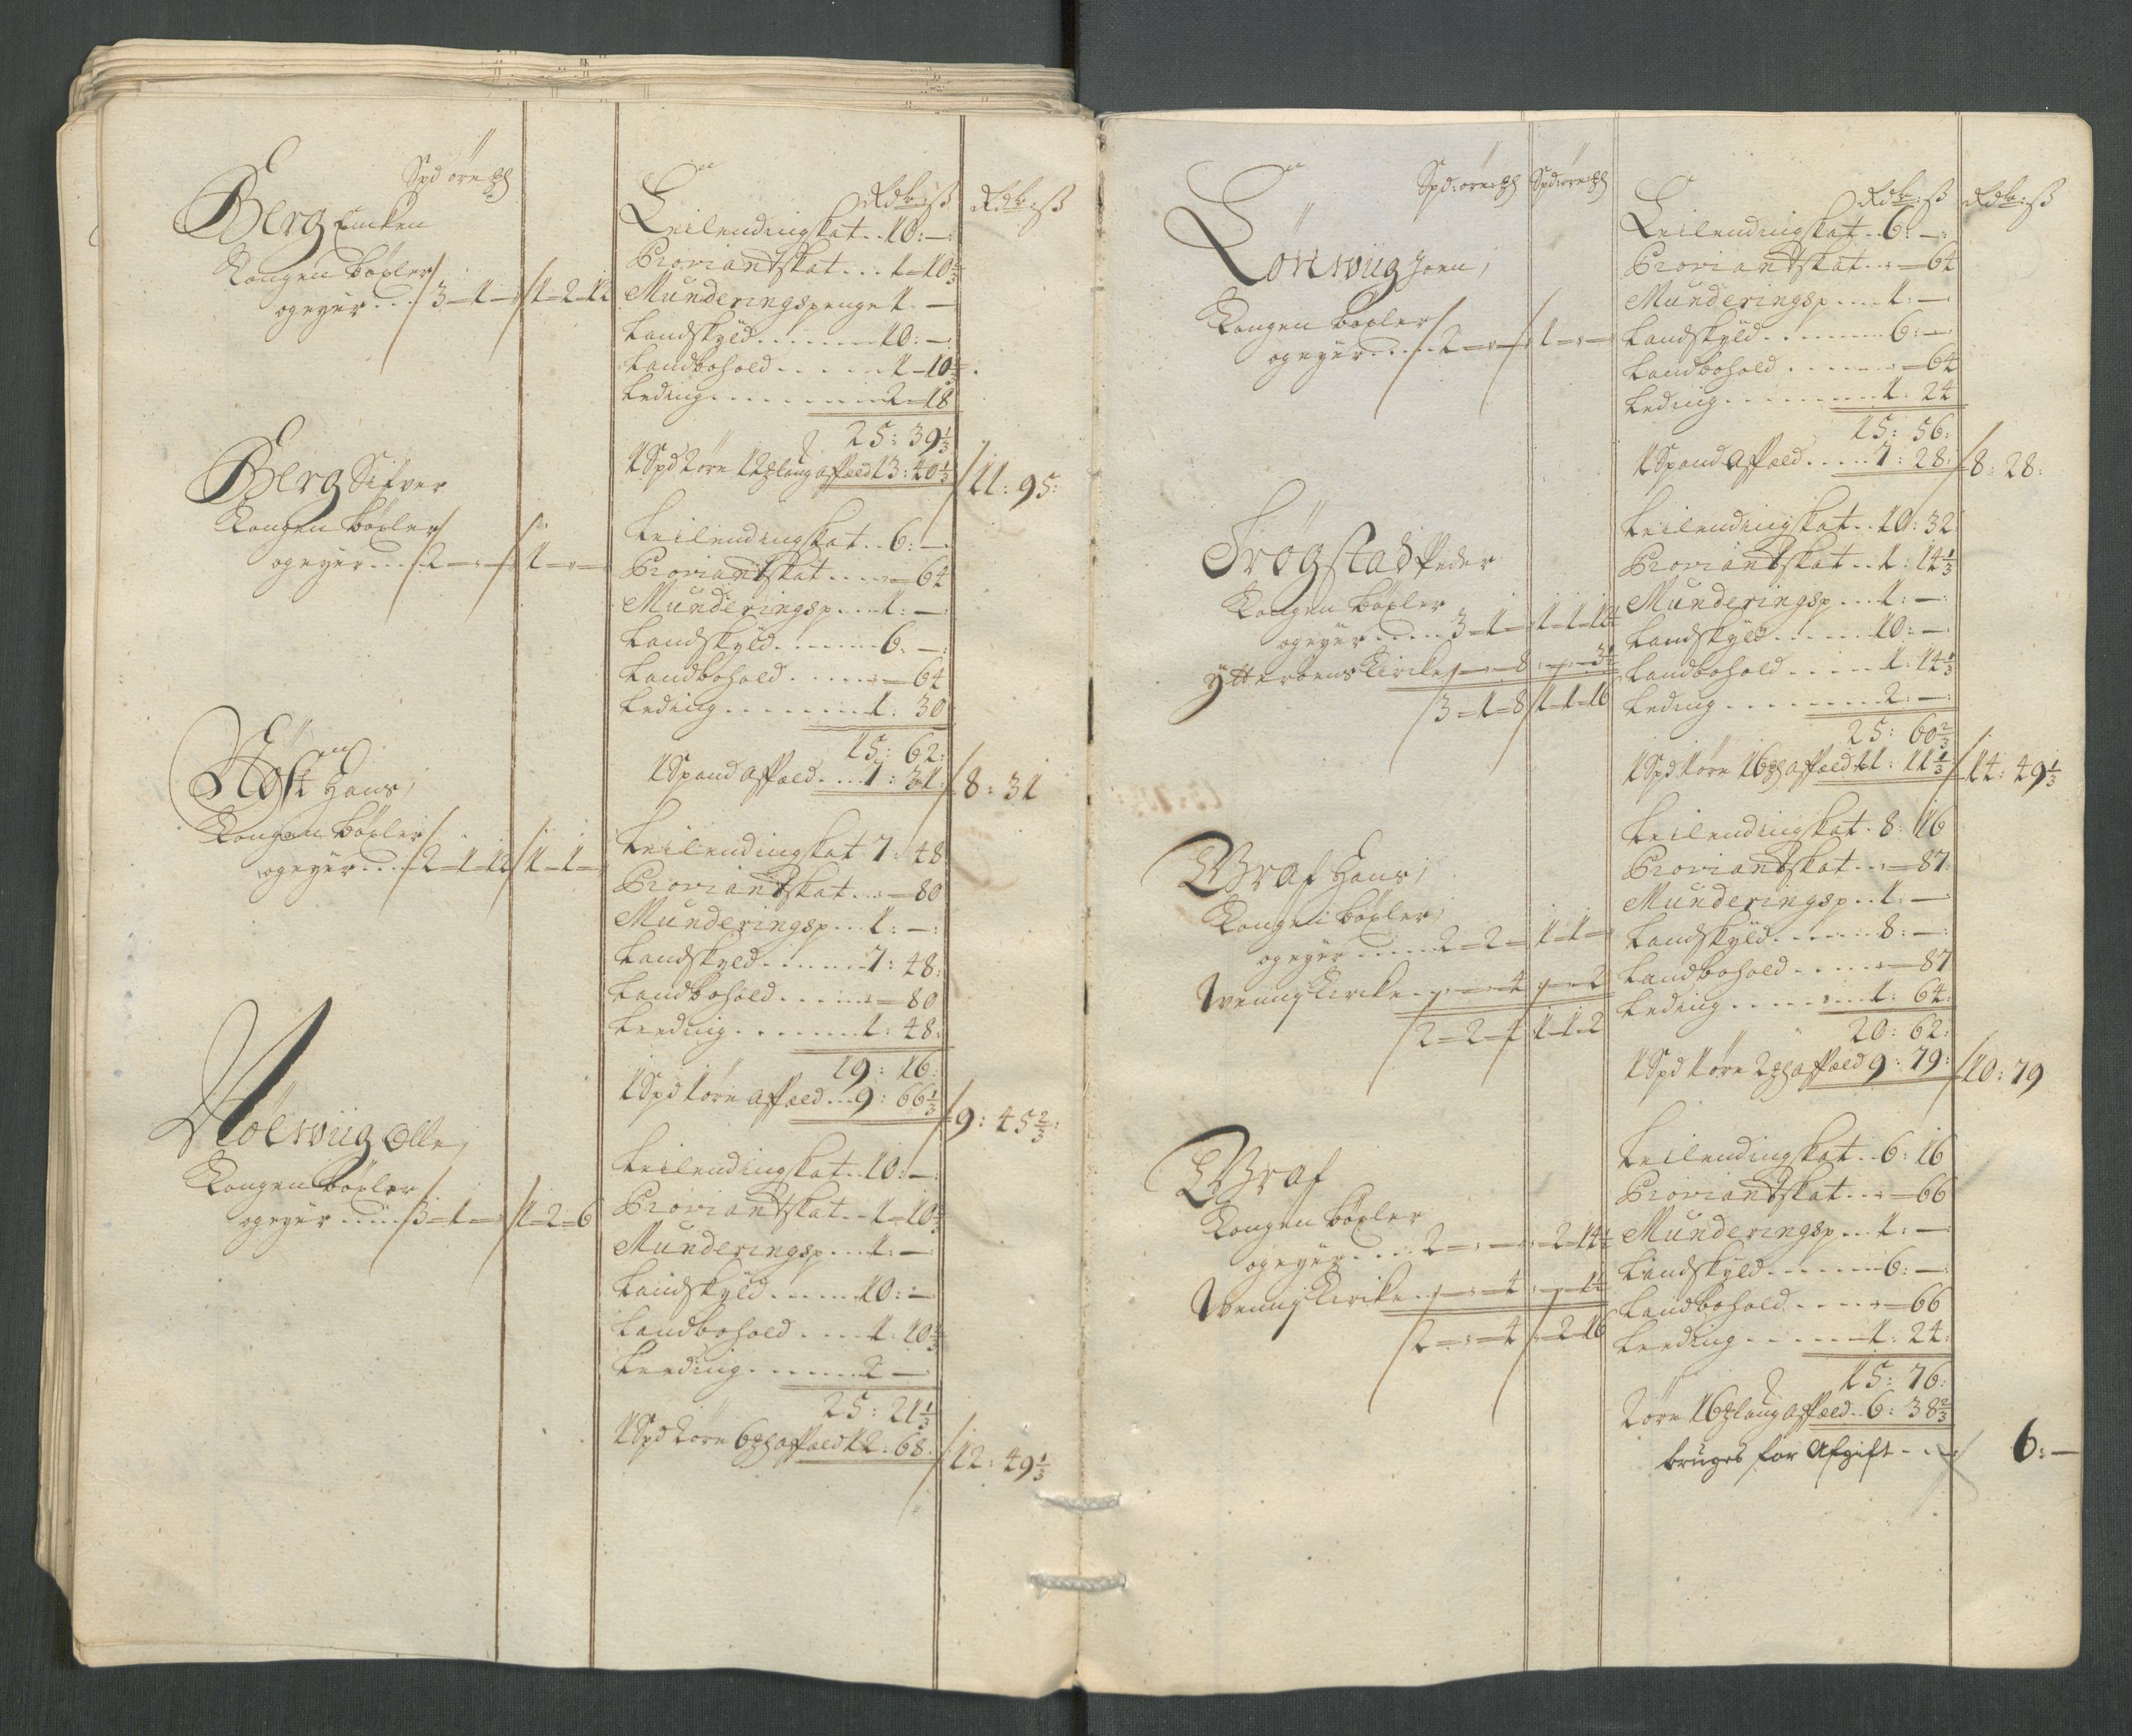 Spd øre ℔
Rdr: ß
Rdr: ß
Berg Enken
Kongen böxler
og eyer . . . 3 – 1 – 1 – 2 – 12
Leilendingskat . . 10: –
Proviantskat . . . 1 – 10⅔
Munderingspenge 1. –
Landskyld . . . . . . . 10: –
Landbohold . . . . . . 1 – 10⅔
Leding . . . . . . . . . 2 – 18
25: 39⅓
1 Spd 2 øre 12 ℔ laug affæld 13: 40⅓
11: 95:
Berg Sifver
Kongen böxler
og eyer . . . 2 – „ – 1 – „ –
Leilendingskat . . 6: –
Proviantskat . . . . „ – 64
Munderingsp . . . . 1: –
Landskyld . . . . . . . 6. –
Landbohold . . . . . „ – 64
Leding . . . . . . . . 1: 30
15: 62:
1 Spand affæld . . . . 7: 31:
8: 31
Höst Hans,
Kongen böxler
og eyer . . . 2 – 1 – 12 1 – 1 –
Leilendingskat 7: 48
Proviantskat . . „ – 80
Munderingsp . . . 1: –
Landskyld . . . . . . . 7: 48:
Landbohold . . . . . „ – 80
Leeding . . . . . . . . 1: 48:
19: 16:
1 Spd 1 øre affæld . . . 9: 66⅓
9: 45⅔:
Nölsvüg Olle,
Kongen böxler
og eyer . . . . . 3 – 1 – 1 – 2 – 6
Leilendingskat . . 10: –
Proviantskat . . 1 – 10⅔
Munderingsp . . . 1: –
Landskyld . . . . . . 10: –
Landbohold . . . . 1: 10⅔
Leeding . . . . . . . 2 –
25: 21⅓
1 Spd 2 øre 6 ℔ affæld 12: 68:
12: 49⅓
Spd: øre: ℔
Spd: øre: ℔
Rdr: ß
Rdr: ß
Lörsvüg Joen,
Kongen böxler
og eyer . . . . . 2 – „ – 1 – „ –
Leilendingskat . . 6: –
Proviantskat . . „ – 64
Munderingsp . . . . 1: –
Landskyld . . . . . . . . 6: –
Landbohold . . . . . . „ – 64
Leding . . . . . . . . . 1: 24
15: 56:
1 Spand affæld . . . . . 7: 28:
8: 28:
Trögstad Peder
Kongen böxler
og eyer . . . . . 3 – 1 – 1 – 1 – 12½
Ytterøens Kircke „ – „ – 8 „ – „ – 3½
3 – 1 – 8 1 – 1 – 16
Leilendingskat . . 10: 32
Proviantskat . . 1: 14⅓
Munderingsp . . . 1: –
Landskyld . . . . . . 10: –
Landbohold . . . . . 1: 14⅓
Leding . . . . . . . . 2: –
25: 60⅔
1 Spd 1 øre 16 ℔ affæld 11: 11⅓
14: 49⅓
Graf Hans,
Kongen böxler,
og eyer . . . . . 2 – 2 – 1 – 1 –
Wennes Kircke . . „ – „ – 4 „ – „ – 2
2 – 2 – 4 1 – 1 – 2
Leilendingskat . 8: 16
Proviantskat . . „ – 87:
Munderingsp . . 1: –
Landskyld . . . . . . 8: –
Landbohold . . . . . „ – 87
Leding . . . . . . . . 1: 64:
20: 62:
1 Spd 1 øre 2 ℔ affæld 9: 79:
10: 79
Graf
Kongen böxler
og eyer . . . . 2 – „ – „ – 2 – 14½
Wennes Kircke . . „ – „ – 4 „ – „ – 1½
2 – „ – 4 „ – 2 – 16
Leilendingskat . . 6: 16
Proviantskat . . „ – 66
Munderingsp . . . 1: –
Landskyld . . . . . . . 6: –
Landbohold . . . . „ – 66
Leeding . . . . . . . 1: 24:
15: 76:
2 øre 16 ℔ laug affæld . . 6: 38⅔
bruges for Afgift - - -
6: –